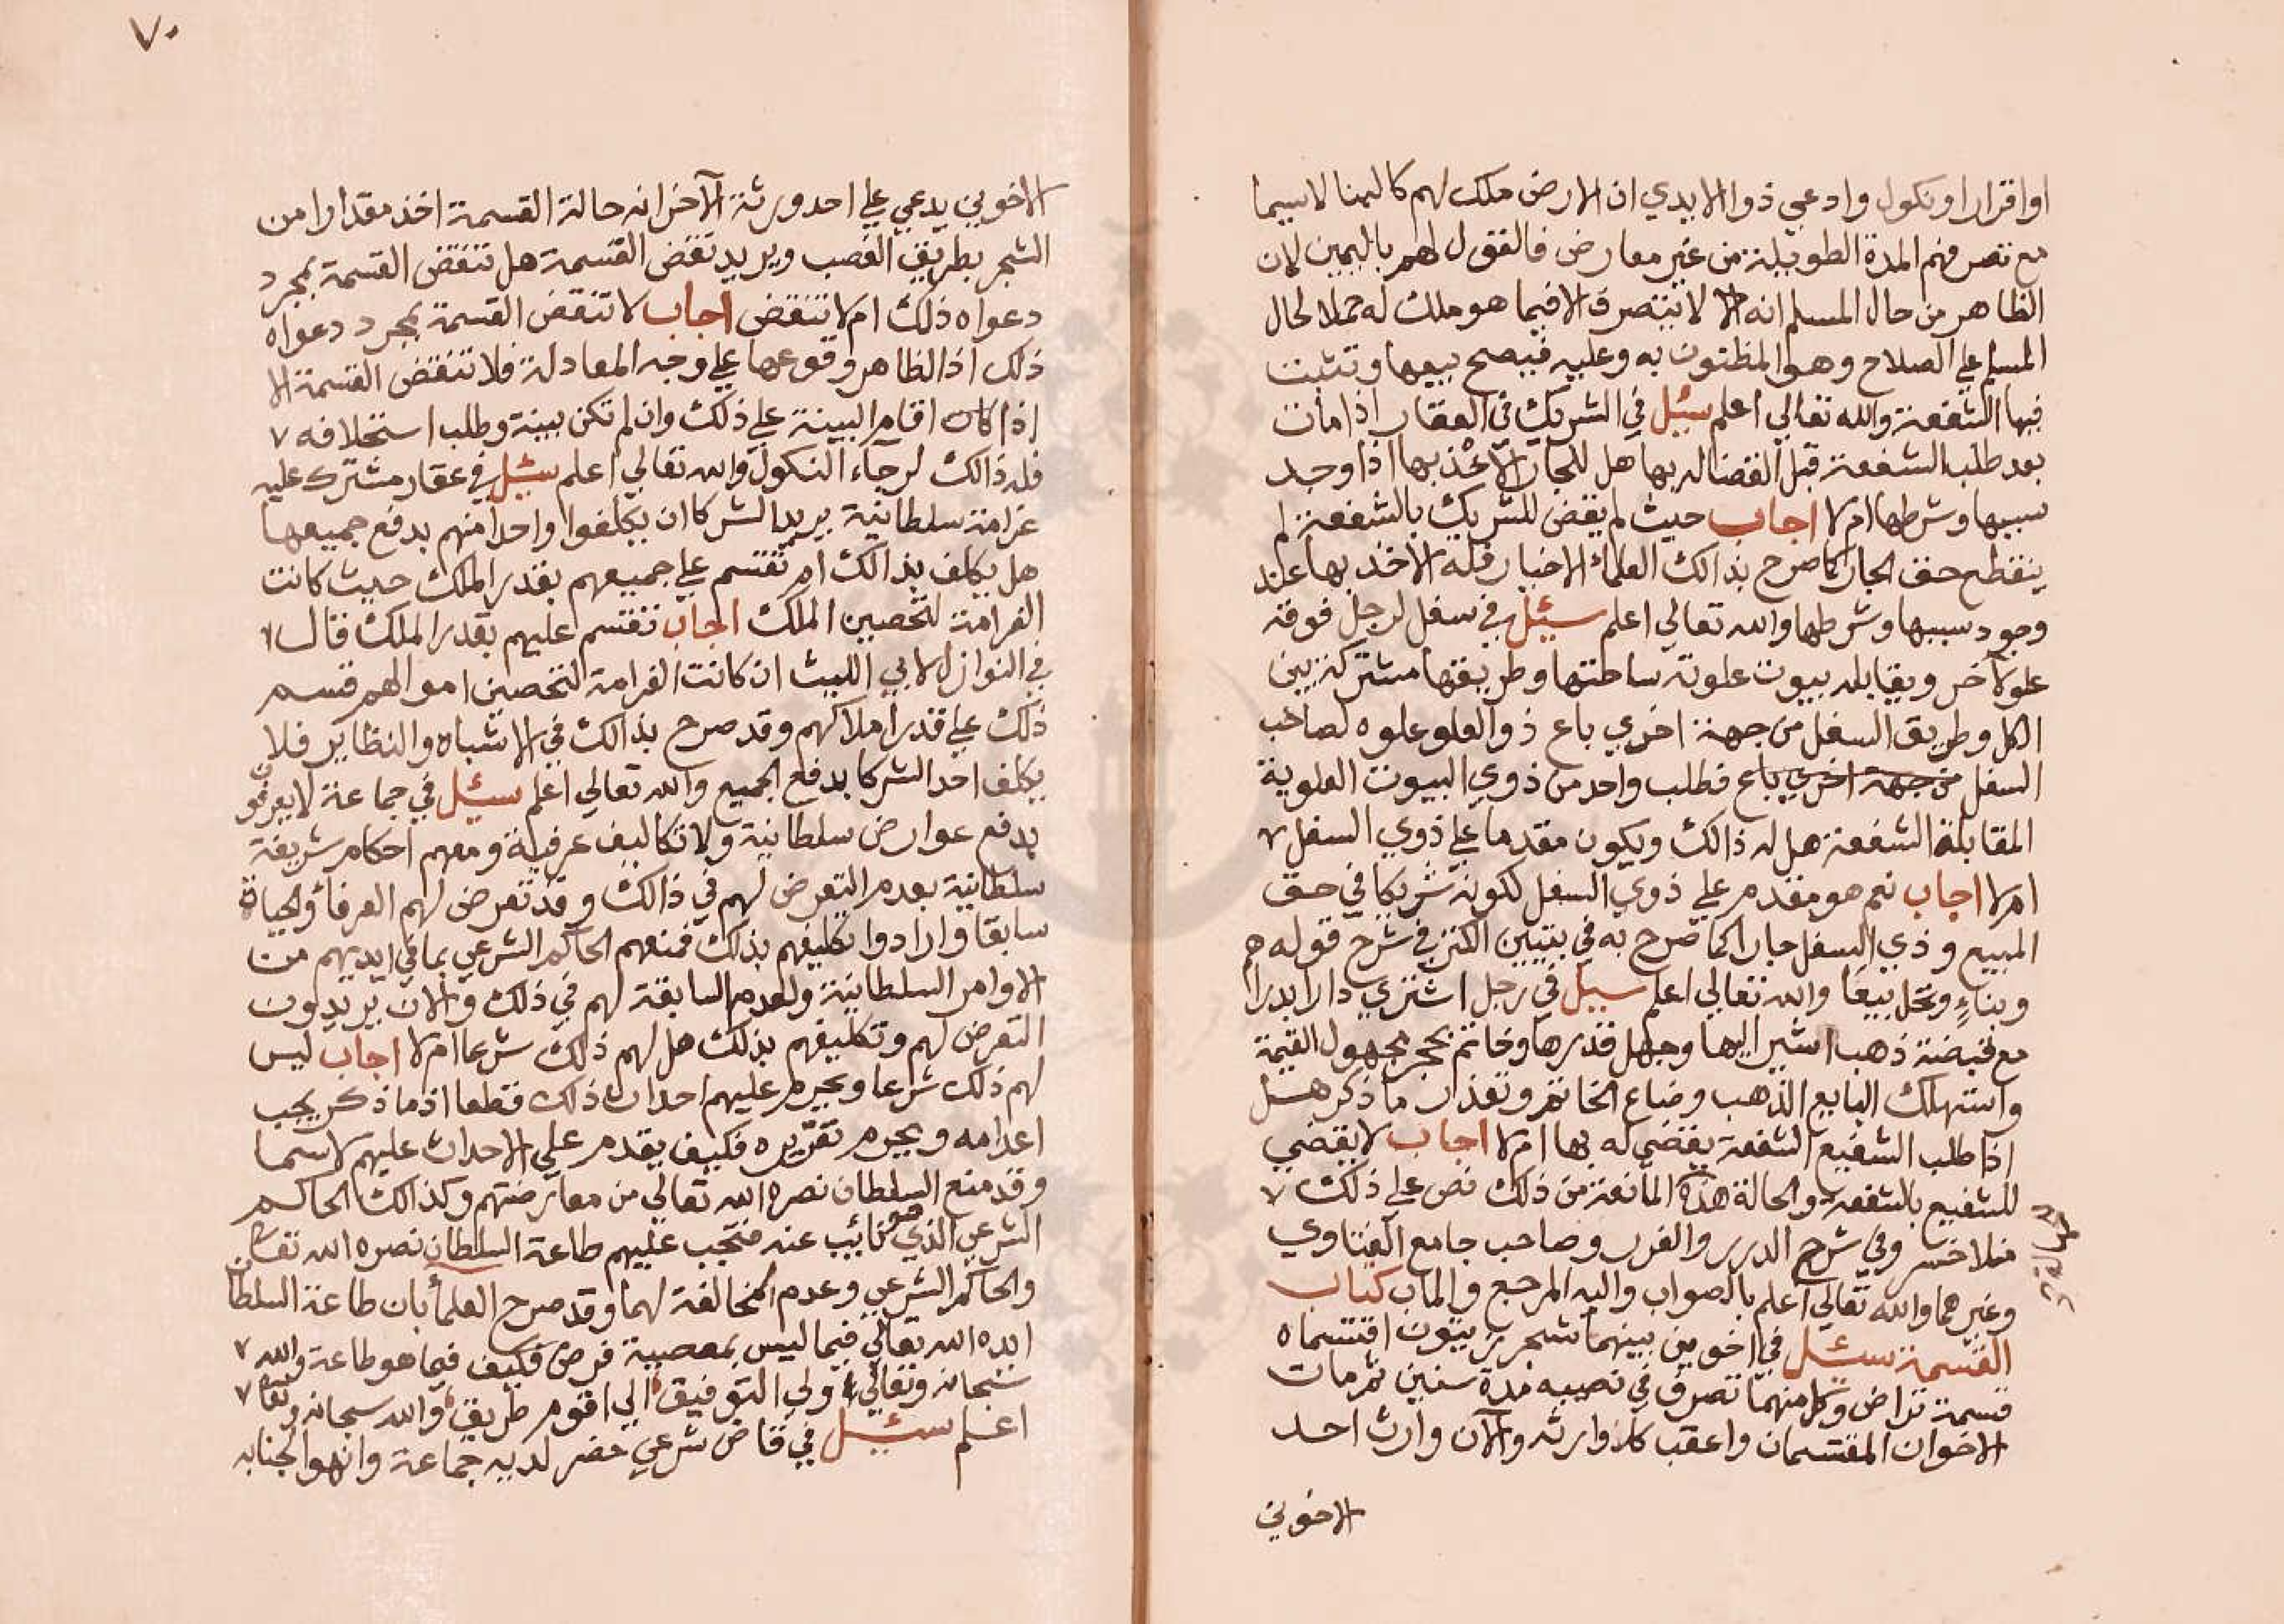 او اقرار او نكول وادعي ذوا الايدي ان الارض ملك لهم كاليمنا لاسيما
مع تصرفهم المدة الطويلة من غير معارض فالقول لهم باليمين لان
الظاهر من حال المسلم انه لا يتصرف الا فيما هو ملك له حملا لحال
المسلم علي الصلاح وهو المظنون به وعليه فيصح بيعها وتثبت
فيها الشفعة والله تعالي اعلم سئل في الشريك في العقار اذا مات
بعد طلب الشفعة قبل القضا له بها هل للجار الاخذ بها اذا وجد
سببها وشرطها ام لا اجاب حيث لم يقض للشريك بالشفعة لم
ينقطع حق الجار كما صرح بذالك العلماء الاخيار فله الاخذ بها عند
وجود سببها وشرطها والله تعالي اعلم سئل في سفل لرجل فوقه
علو لآخر ويقابله بيوت علوية ساحتها وطريقها مشتركة بين
الكل وطريق السفل من جهة اخري باع ذو العلو علوه لصاحب
السفل من جهة اخري باع فطلب واحد من ذوي البيوت العلوية
المقابلة الشفعة هل له ذالك ويكون مقدما علي ذوي السفل ٧
ام لا اجاب نعم هو مقدم علي ذوي السفل لكونه شريكا في حق
المبيع وذي السفل جارا كما صرح به في تبيين الكنز في شرح قوله
وبناء ونخل بيعا والله تعالي اعلم سيل في رجل اشتري دارا بدراهم
مع قبضة ذهب اشير اليها وجهل قدرها وخاتم بحجر مجهول القيمة
واستهلك البايع الذهب وضاع الخاتم وتعذر ما ذكر هل
اذا طلب الشفيع الشفعة يقضي له بها ام لا اجاب لا يقضي
للشفيع بالشفعة والحالة هذه المانعة من ذلك نص علي ذلك ٧
منلا خسر وفي شرح الدرر والغرر وصاحب جامع الفتاوي
وغيرهما والله تعالي اعلم بالصواب واليه المرجع والماب كتاب
القسمة سئل في اخوين بينهما شجر زيتون اقتسماه
قسمة تراض وكل منهما تصرف في نصيبه مدة سنين ثم مات
الاخوان المقتسمان واعقب كل وارثه والآن وارث احد
الاخوين
٧٠
الاخوين يدعي علي احد ورثة الآخر انه حالة القسمة اخذ مقدارا من
الشجر بطريق الغصب ويريد نقض القسمة هل تنقض القسمة بمجرد
دعواه ذلك ام لا تنقض اجاب لا تنقض القسمة بمجرد دعواه
ذلك اذ الظاهر وقوعها علي وجه المعادلة فلا تنقض القسمة الا
اذا كان اقام البينة علي ذلك وان لم تكن بينة وطلب استحلافه ٧
فله ذالك لرجاء النكول والله تعالي اعلم سئل في عقار مشترك عليه
غرامة سلطانية يريد الشركا ان يكلفوا واحدا منهم بدفع جميعها
هل يكلف بذالك ام تقسم علي جميعهم بقدر الملك حيث كانت
الغرامة لتحصين الملك اجاب تقسم عليهم بقدر الملك قال ٧
في النوازل لابي الليث ان كانت الغرامة لتحصين اموالهم قسم
ذلك علي قدر املاكهم وقد صرح بذالك في الاشباه والنظاير فلا
يكلف احد الشركا بدفع الجميع والله تعالي اعلم سئل في جماعة لا يعرفون
بدفع عوارض سلطانية ولا تكاليف عرفية ومعهم احكام شريفة
سلطانية بعدم التعرض لهم في ذالك وقد تعرض لهم العرفا والجباة
سابقا وارادوا تكليفهم بذلك فمنعهم الحاكم الشرعي بما في ايديهم من
الاوامر السلطانية ولعدم السابقة لهم في ذلك والآن يريدون
التعرض لهم وتكليفهم بذلك هل لهم ذلك شرعا ام لا اجاب ليس
لهم ذلك شرعا ويحرم عليهم احداث ذلك قطعا اذ ما ذكر يجب
اعدامه ويحرم تقريره فكيف يقدم علي الاحداث عليهم لاسما
وقد منع السلطان نصره الله تعالي من معارضتهم وكذالك الحاكم
الشرعي الذي هو نائب عنه فتجب عليهم طاعة السلطان نصره الله تعالي
والحاكم الشرعي وعدم المخالفة لهما وقد صرح العلما بان طاعة السلطان
ايده الله تعالي فيما ليس بمعصية فرض فكيف فيما هو طاعة والله ٧
سبحانه وتعالي ولي التوفيق الي اقوم طريق والله سبحانه وتعا ٧
اعلم سئل في قاض شرعي حضر لديه جماعة وانهوا لجنابه